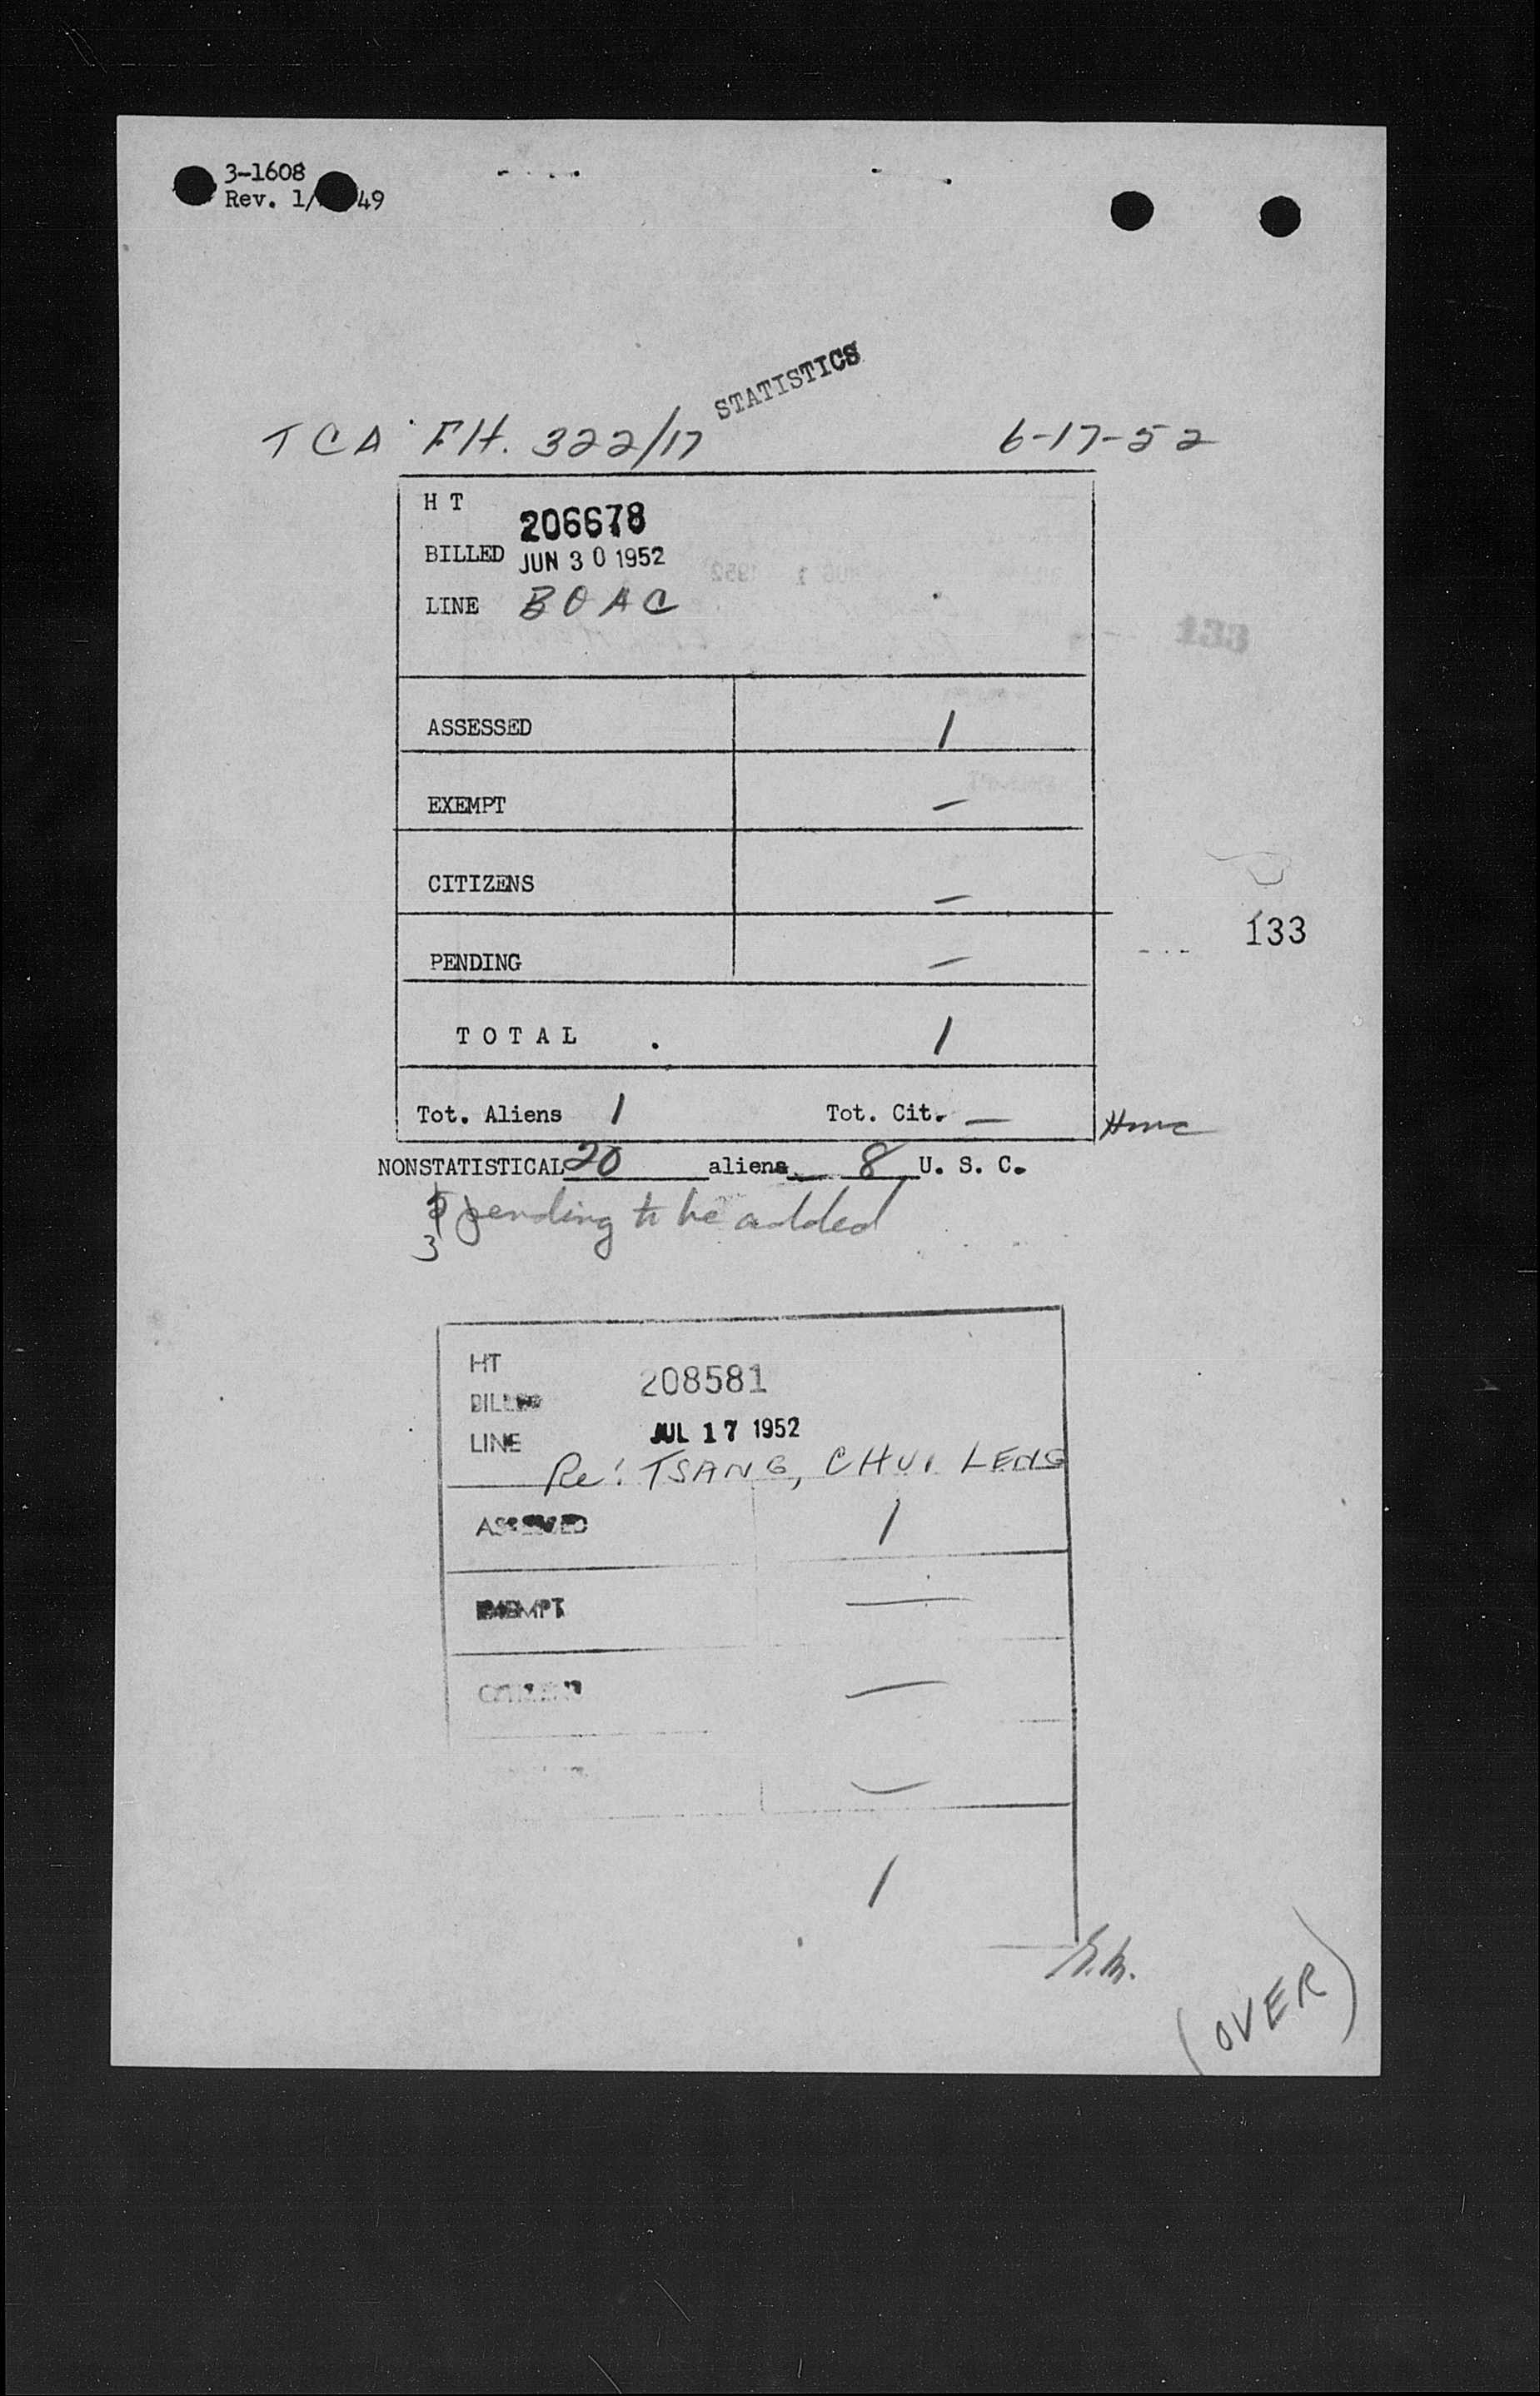 3-1608
Rev. 1/ 49
STATISTICS
TCA Flt. 322/17 6-17-52
H T 206678
BILLED JUN 30 1952
LINE BOAC
133
ASSESSED 1
EXEMPT —
CITIZENS —
133
PENDING —
TOTAL 1
Tot. Aliens 1 Tot. Cit. —
NONSTATISTICAL 20 aliens 8 U. S. C.
pending to be added
3
HT 208581
BILLED
LINE JUL 17 1952
Re: TSANG, CHUI LENG
ASSESSED 1
EXEMPT —
CITIZENS —
—
1
(OVER)